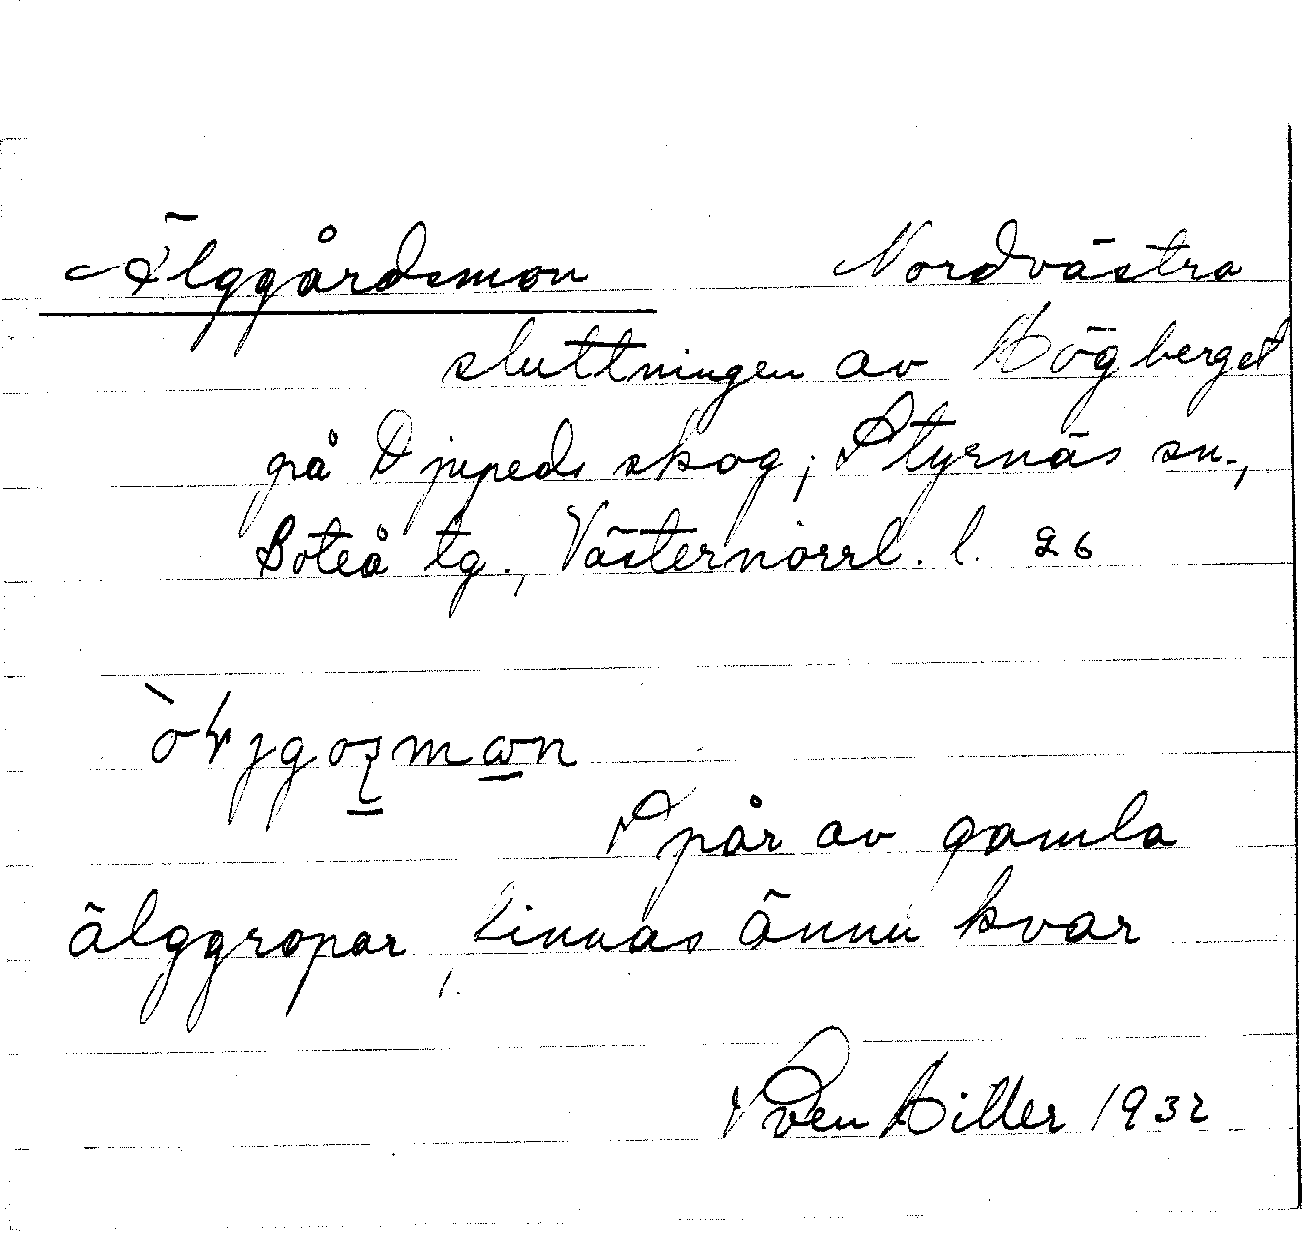 Älggårdsmon Nordvästra
sluttningen av Högberget
på Djupeds skog; Styrnäs sn.,
Boteå tg., Västernorrl. l. 26
Spår av gamla
älggropar, finnas ännu kvar
Sven Hiller 1932